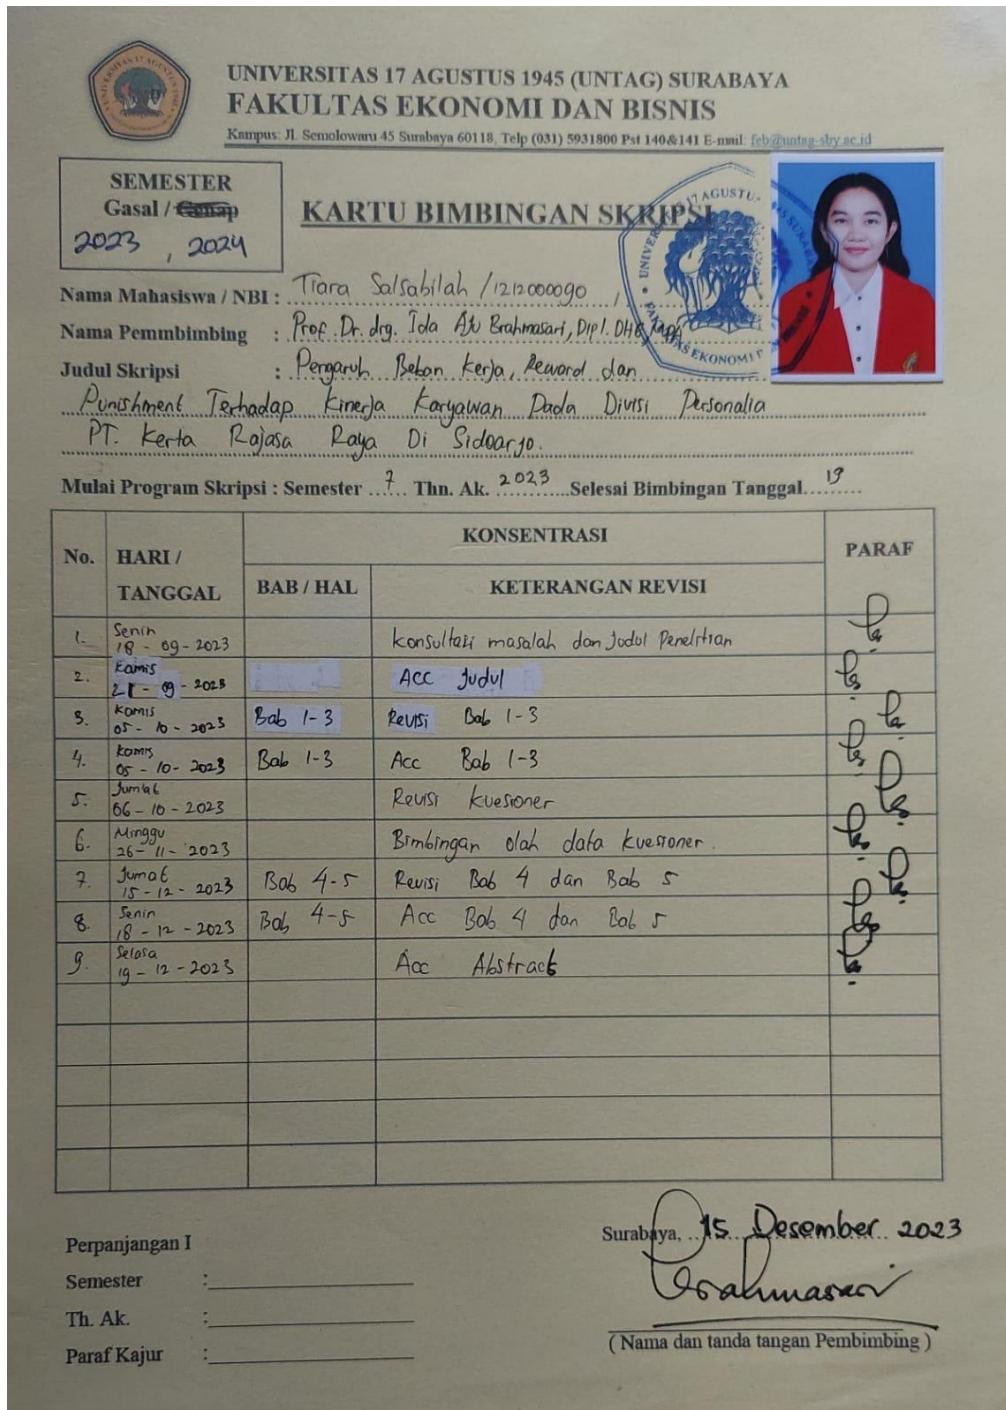 UNIVERSITAS 17 AGUSTUS 1945 (UNTAG) SURABAYA
FAKULTAS EKONOMI DAN BISNIS
Kampus: Jl. Semolowaru 45 Surabaya 60118, Telp (031) 5931800 Pst 140&141 E-mail: feb@untag-sby.ac.id
SEMESTER
Gasal / Genap
2023 , 2024
KARTU BIMBINGAN SKRIPSI
Nama Mahasiswa / NBI : Tiara Salsabilah / 1212000090
Nama Pemmbimbing : Prof. Dr. drg. Ida Ayu Brahmasari, Dipl. DHE, MPA
Judul Skripsi : Pengaruh Beban Kerja, Reward dan
Punishment Terhadap Kinerja Karyawan Pada Divisi Personalia
PT. Kerta Rajasa Raya Di Sidoarjo.
Mulai Program Skripsi : Semester 7 Thn. Ak. 2023 Selesai Bimbingan Tanggal 19
No. HARI / TANGGAL KONSENTRASI PARAF
BAB / HAL KETERANGAN REVISI
1. Senin 18 - 09 - 2023 Konsultasi masalah dan Judul Penelitian
2. Kamis 21 - 09 - 2023 Acc Judul
3. Kamis 05 - 10 - 2023 Bab 1-3 Revisi Bab 1-3
4. Kamis 05 - 10 - 2023 Bab 1-3 Acc Bab 1-3
5. Jumat 06 - 10 - 2023 Revisi Kuesioner
6. Minggu 26 - 11 - 2023 Bimbingan olah data kuesioner.
7. Jumat 15 - 12 - 2023 Bab 4-5 Revisi Bab 4 dan Bab 5
8. Senin 18 - 12 - 2023 Bab 4-5 Acc Bab 4 dan Bab 5
9. Selasa 19 - 12 - 2023 Acc Abstract
Perpanjangan I
Semester :
Th. Ak. :
Paraf Kajur :
Surabaya, 15 Desember 2023
Brahmasari
( Nama dan tanda tangan Pembimbing )